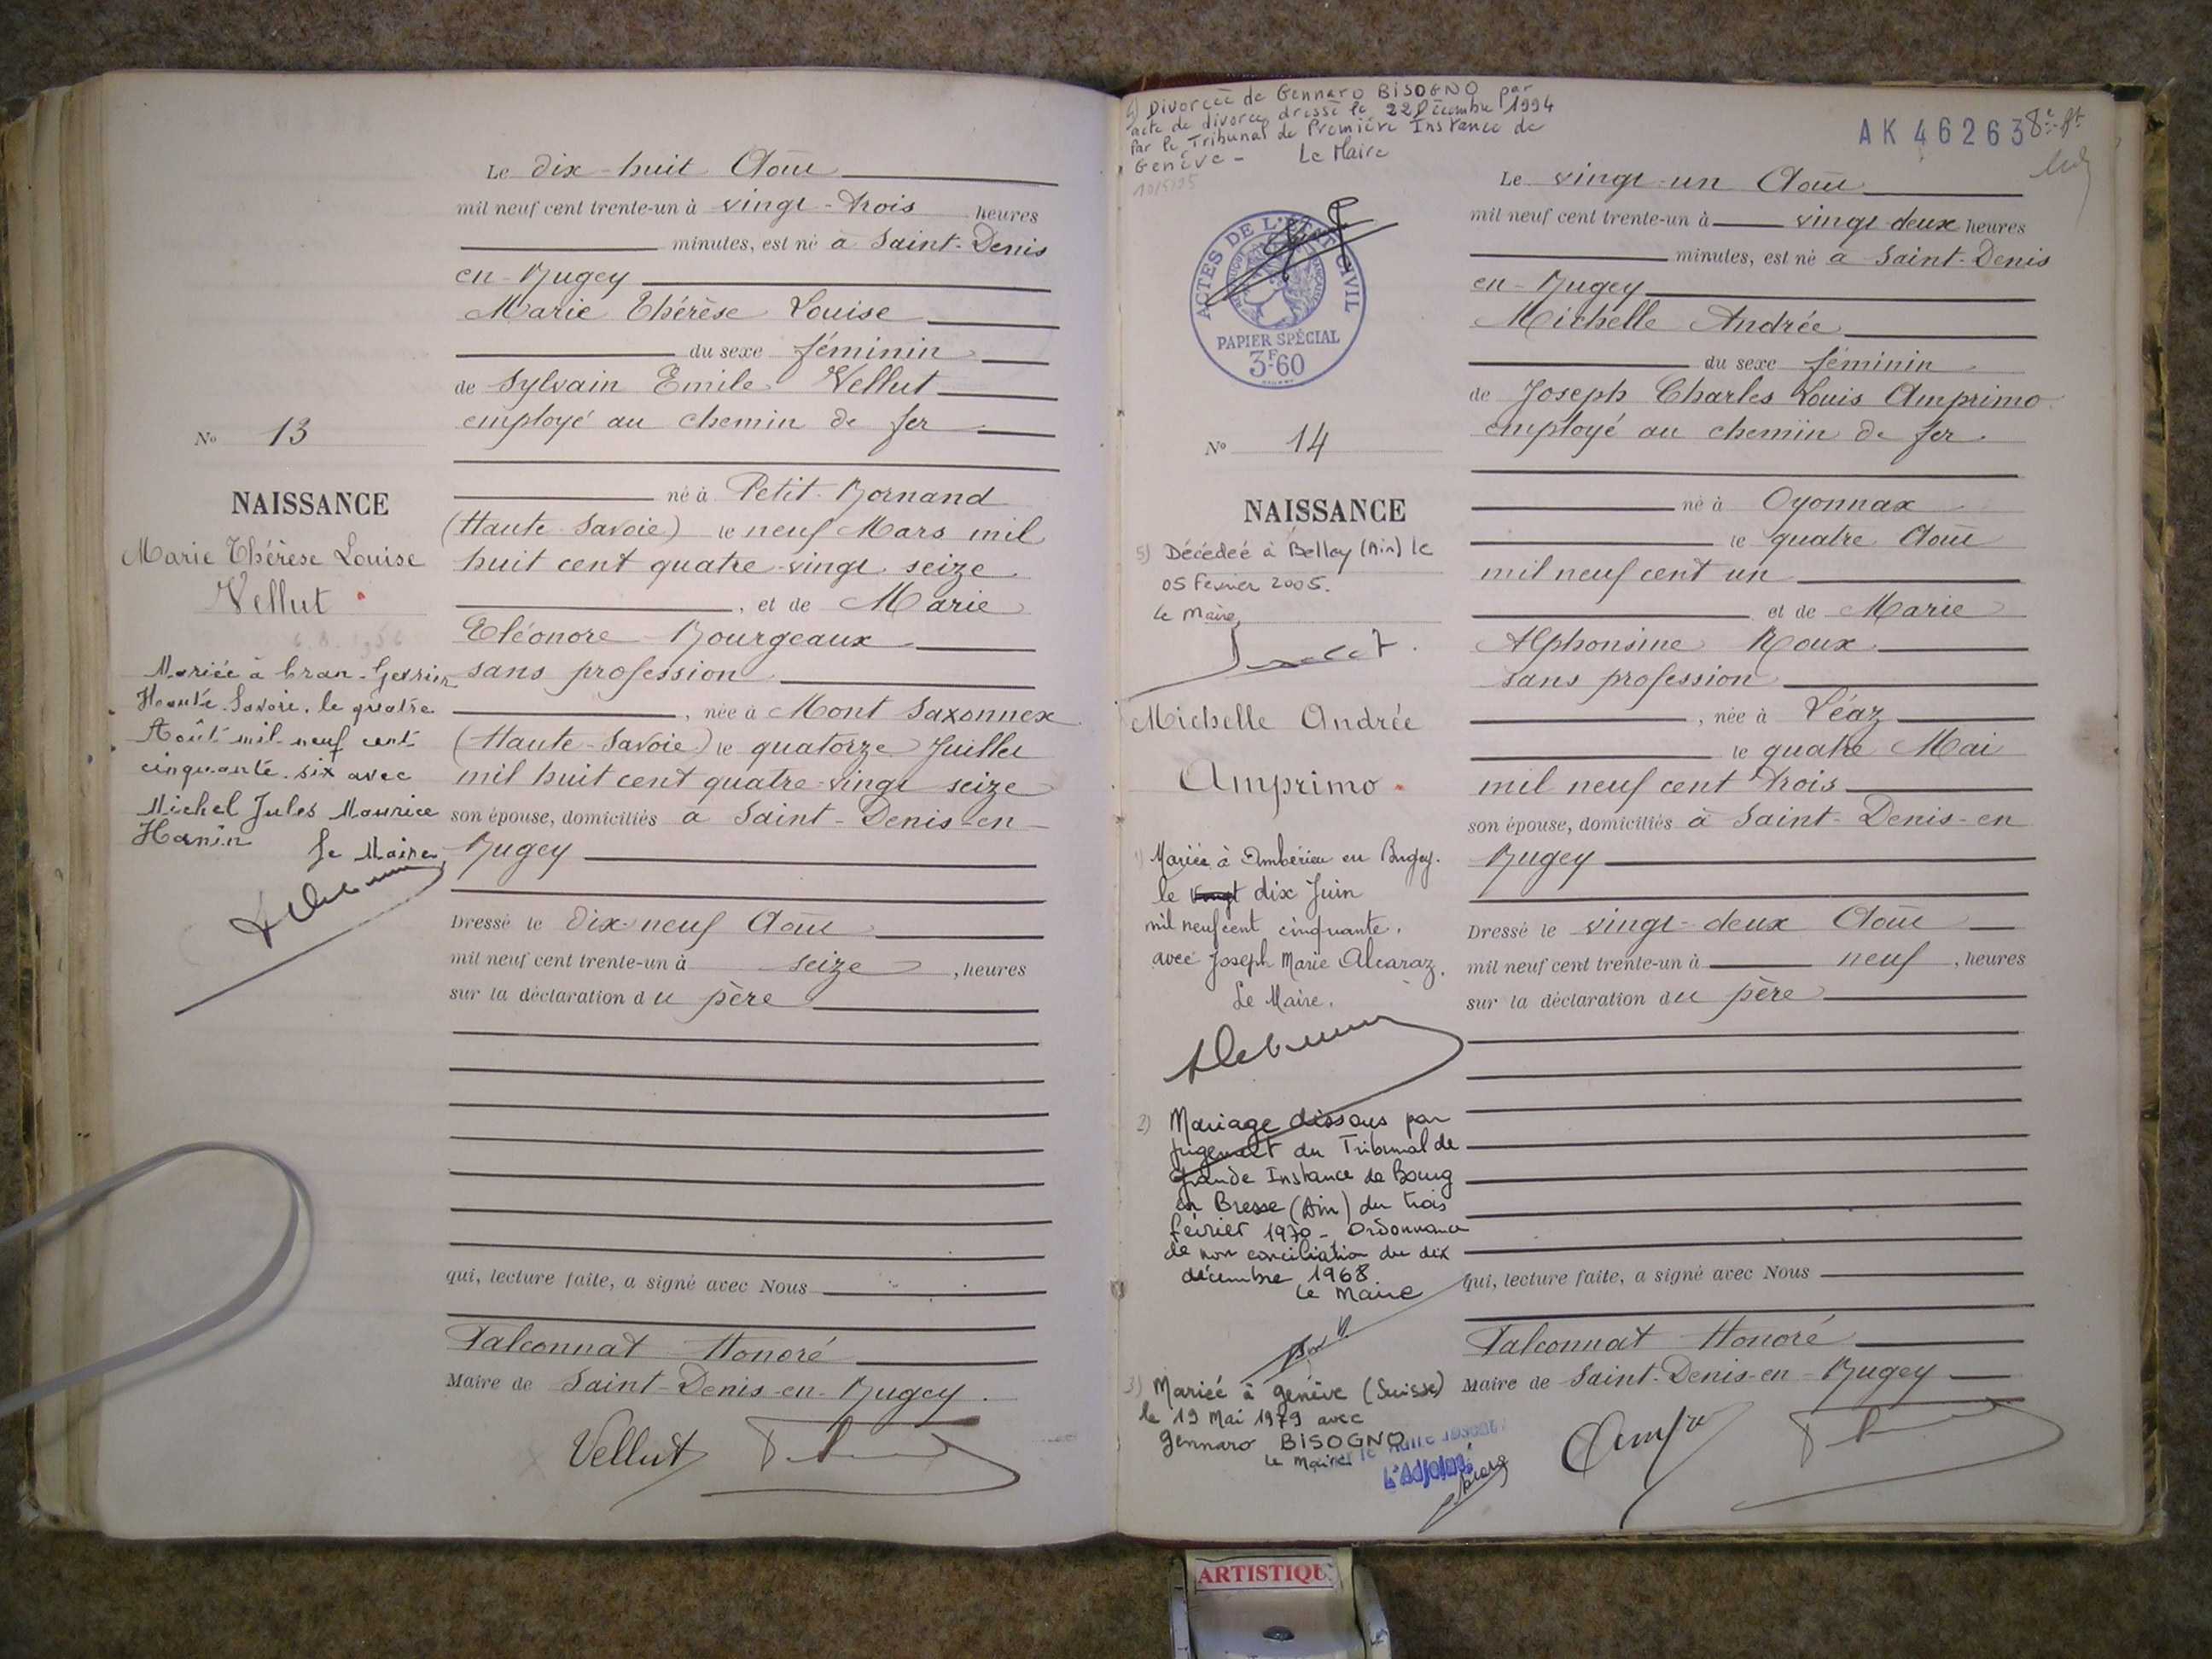 Le dix-huit Août
mil neuf cent trente-un à vingt-trois heures
minutes, est né à Saint-Denis
en-Bugey
Marie Thérèse Louise
du sexe féminin
de Sylvain Emile Vellut
employé au chemin de fer
né à Petit-Bornand
(Haute-Savoie) le neuf Mars mil
huit cent quatre-vingt-seize
, et de Marie
Eléonore Bourgeaux
sans profession
, née à Mont Saxonnex
(Haute-Savoie) le quatorze Juillet
mil huit cent quatre-vingt seize
son épouse, domiciliés à Saint-Denis-en-
Bugey
Dressé le dix-neuf Août
mil neuf cent trente-un à seize, heures
sur la déclaration du père
qui, lecture faite, a signé avec Nous
Falconnat Honoré
Maire de Saint-Denis-en-Bugey.
Vellut
No 13
NAISSANCE
Marie Thérèse Louise
Vellut
6.8.1956
Mariée à Cran-Gevrier
Haute-Savoie, le quatre
Août mil-neuf cent
cinquante-six avec
Michel Jules Maurice
Hanin Le Maire,
4) Divorcée de Gennaro BISOGNO par
acte de divorce dressé le 22 Décembre 1994
par le Tribunal de Première Instance de
Genève - Le Maire
10/5/95
AK 46263
8e ft
ACTES DE L'ÉTAT CIVIL
PAPIER SPÉCIAL
3F60
No 14
NAISSANCE
5) Décédée à Belley (Ain) le
05 Février 2005.
Le Maire,
Michelle Andrée
Amprimo
1) Mariée à Ambérieu en Bugey.
le vingt dix Juin
mil neuf cent cinquante.
avec Joseph Marie Alcaraz.
Le Maire.
2) Mariage dissous par
jugement du Tribunal de
Grande Instance de Bourg
en Bresse (Ain) du trois
février 1970 - Ordonnance
de non conciliation du dix
décembre 1968
Le Maire
3) Mariée à Genève (Suisse)
le 19 Mai 1979 avec
Gennaro BISOGNO
Le Maire
L'Adjoint,
Le vingt-un Août
mil neuf cent trente-un à vingt-deux heures
minutes, est né à Saint-Denis
en-Bugey
Michelle Andrée
du sexe féminin
de Joseph Charles Louis Amprimo
employé au chemin de fer
né à Oyonnax
le quatre Août
mil neuf cent un
et de Marie
Alphonsine Roux
sans profession
, née à Léaz
le quatre Mai
mil neuf cent trois
son épouse, domiciliés à Saint-Denis-en
Bugey
Dressé le vingt-deux Août
mil neuf cent trente-un à neuf, heures
sur la déclaration du père
qui, lecture faite, a signé avec Nous
Falconnat Honoré
Maire de Saint-Denis-en-Bugey
ARTISTIQU